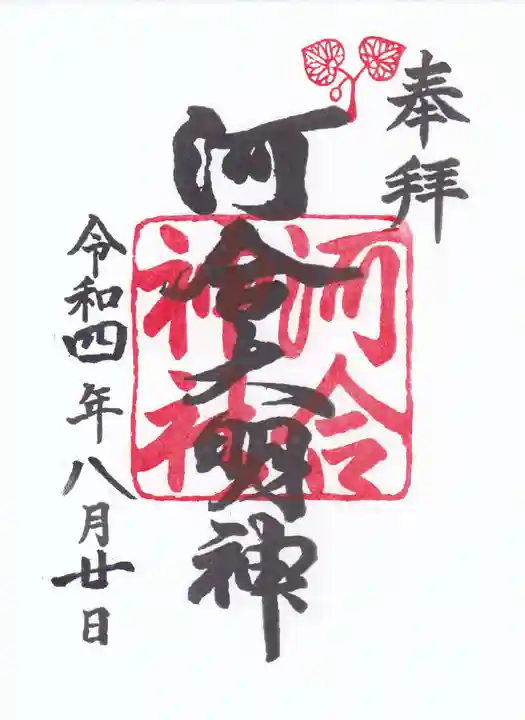 奉拝
河合大明神
河合
神社
令和四年八月廿日